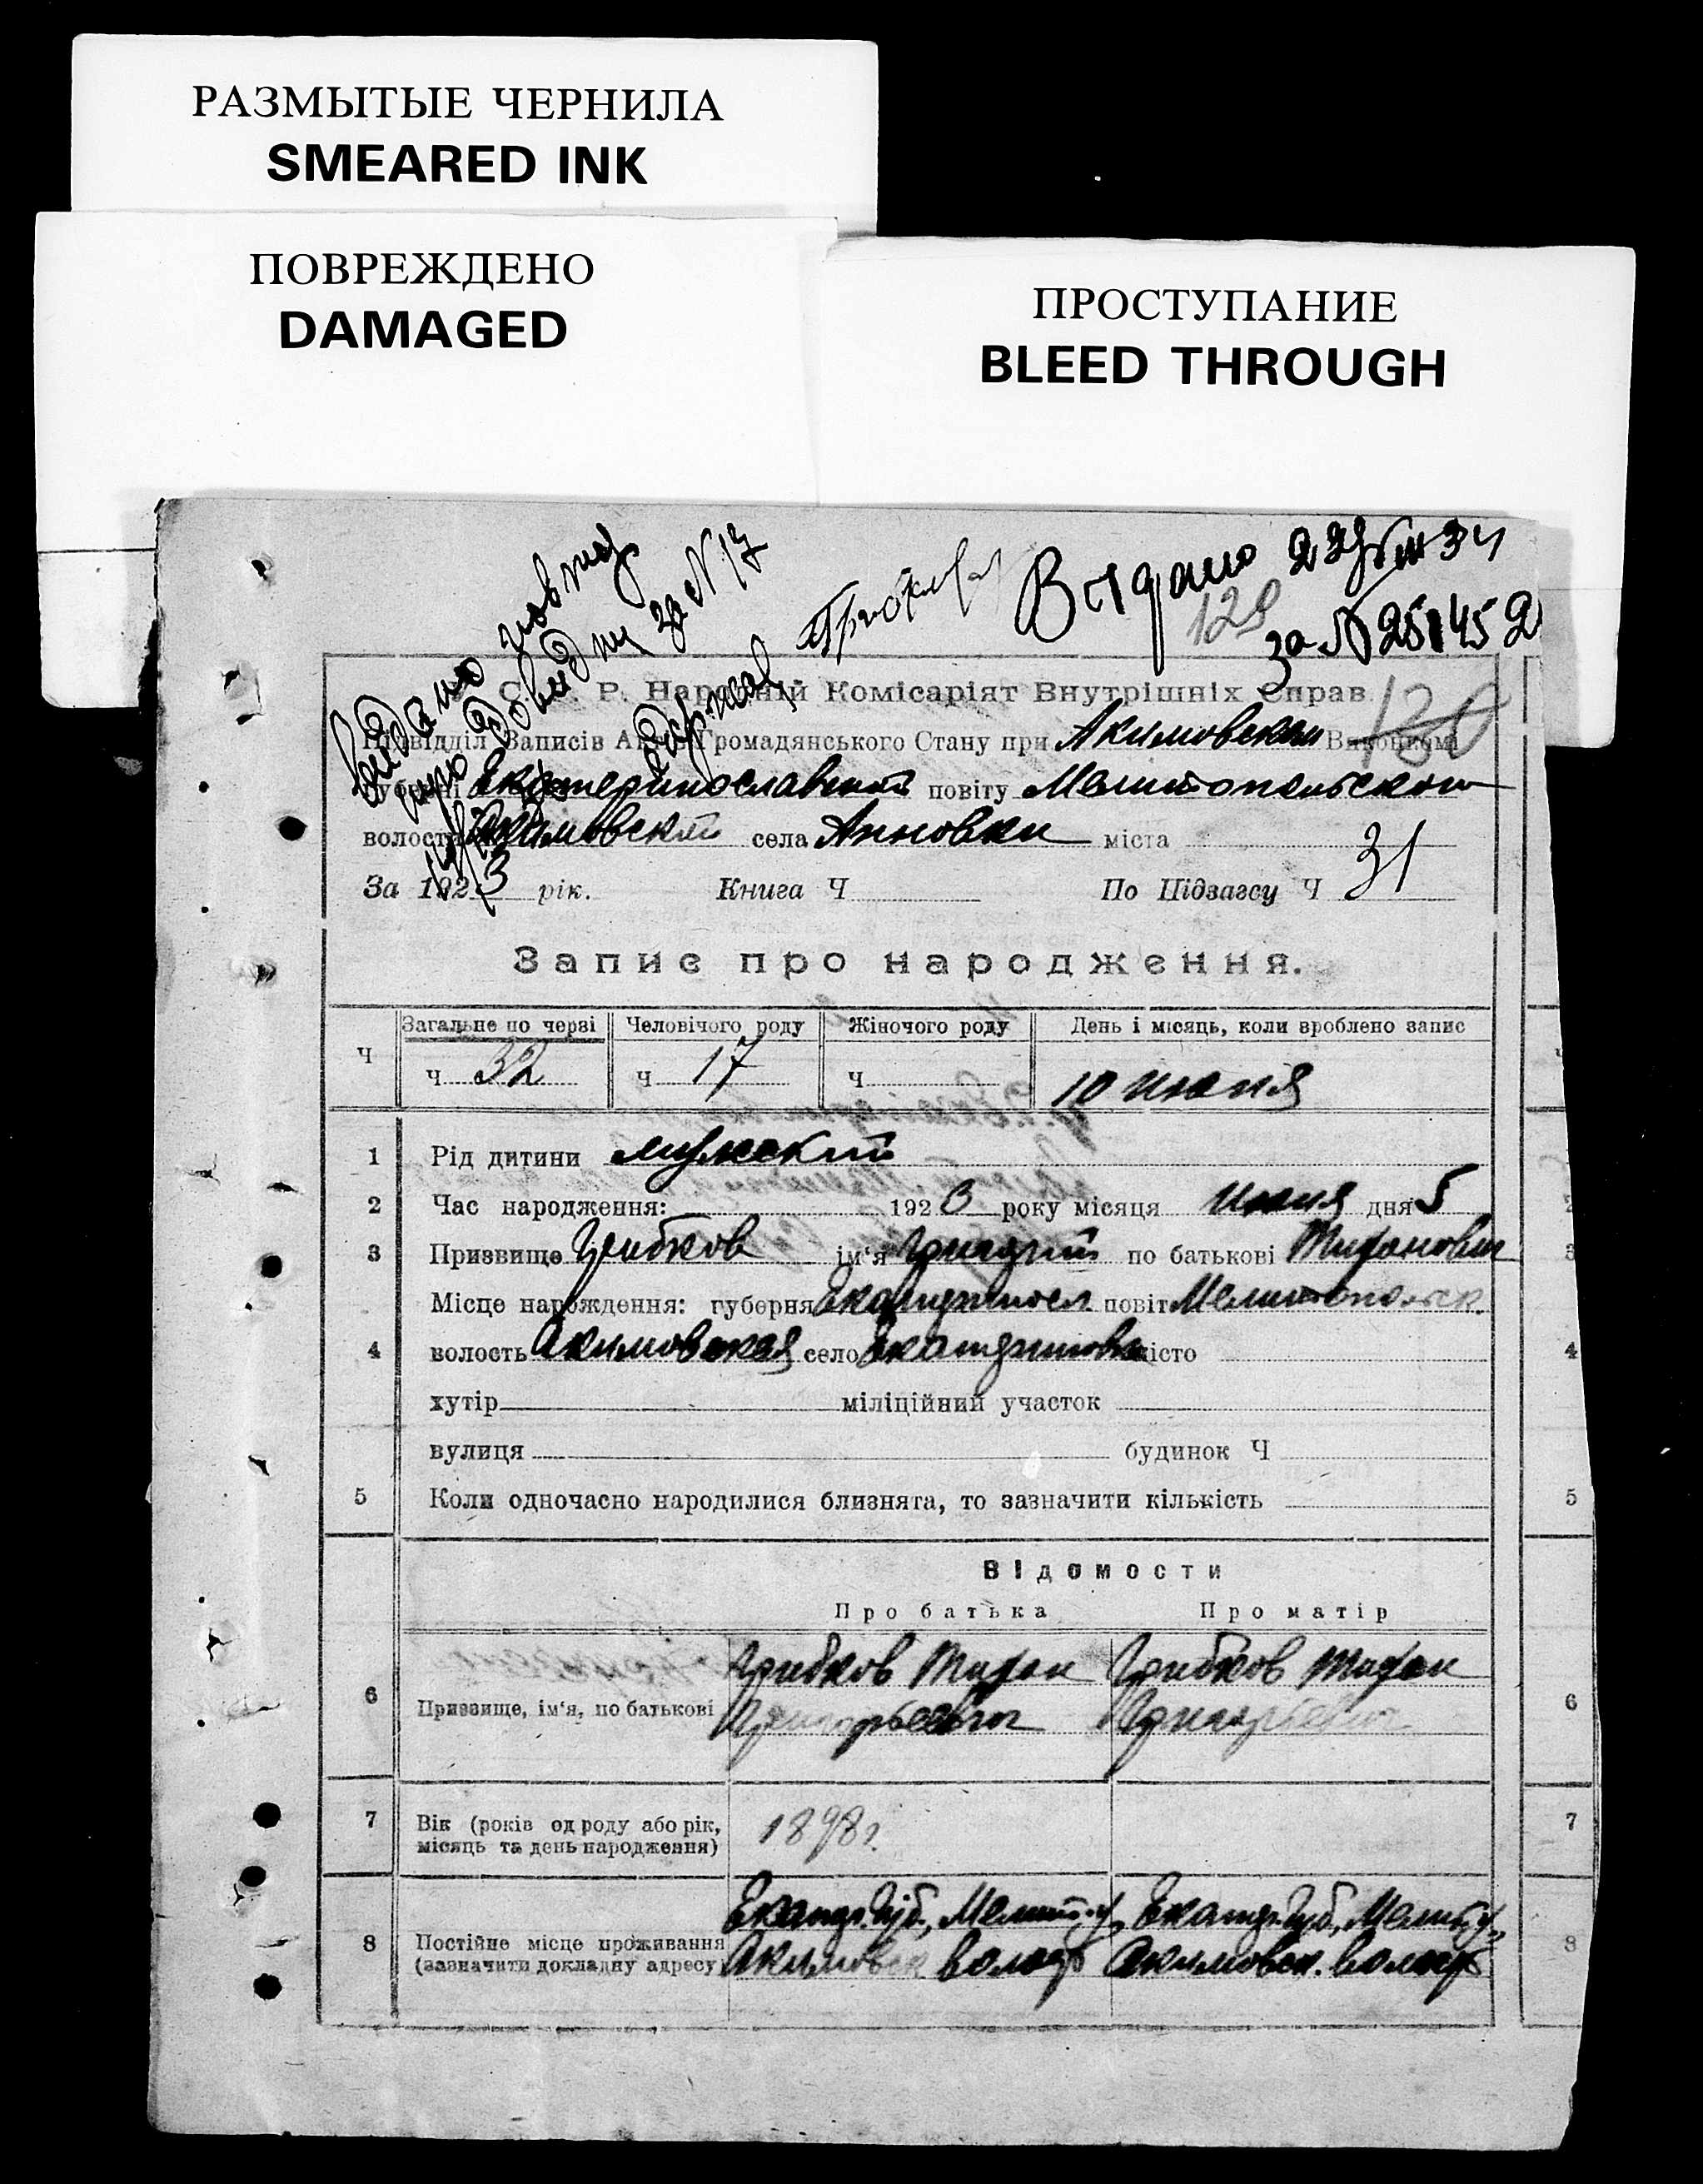 РАЗМЫТЫЕ ЧЕРНИЛА
SMEARED INK
ПОВРЕЖДЕНО
DAMAGED
ПРОСТУПАНИЕ
BLEED THROUGH
Видано повтор
за № 17
129
за № 25145 2
130
Р. Народній Комісаріят Внутрішніх Справ.
Підвідділ Записів Актів Громадянського Стану при Акимовском Виконкомі
губерні Екатеринославской повіту Мелитопольского
волости Акимовской села Анновки міста
За 1923 рік. Книга Ч По Підзагсу Ч 31
Запис про народження.
Ч Загальне по черзі Человічого роду Жіночого роду День і місяць, коли вроблено запис
ч 32 ч 17 ч 10 июня
1 Рід дитини мужской
2 Час народження: 1923 року місяця июня дня 5
3 Призвище Грибков ім'я Григорий по батькові Тифонович
Місце народження: губерня Екатериносл повіт Мелитопольск.
4 волость Акимовская село Екатериновка місто
хутір міліційний участок
вулиця будинок Ч
5 Коли одночасно народилися близнята, то зазначити кількість
Відомости
Про батька Про матір
Грибков Тифон Грибков Тифон
6 Призвище, ім'я, по батькові Григорьевич Григорьевич
7 Вік (років од роду або рік, місяць та день народження) 1898 г.
Екатер. губ., Мелит. у., Екатер. губ., Мелит. у.,
8 Постійне місце проживання (зазначити докладну адресу) Акимовск волость Акимовск. волость